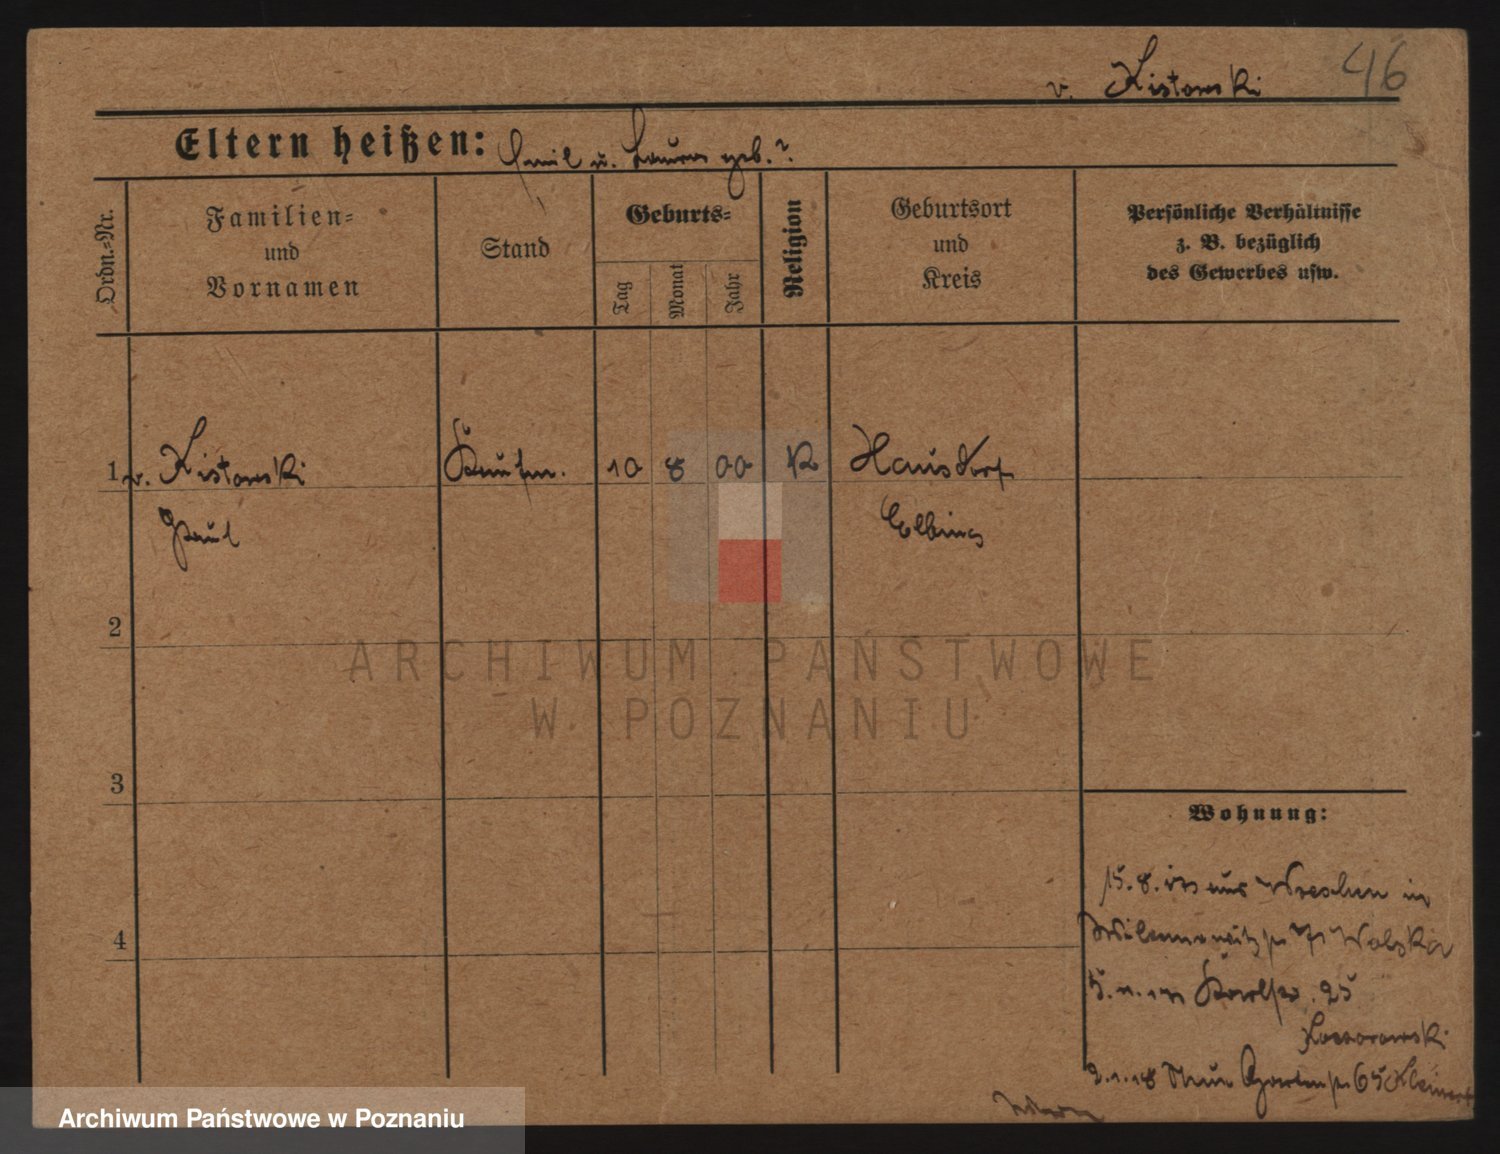 46
v. Kistowski
Eltern heißen: Emil u. Laura geb. ?
Ordn.-Nr.
Familien-
und
Vornamen
Stand
Geburts-
Tag
Monat
Jahr
Religion
Geburtsort
und
Kreis
Persönliche Verhältnisse
z. B. bezüglich
des Gewerbes usw.
1 v. Kistowski Kaufm. 10 8 00 K Hansdorf
Paul Elbing
2
ARCHIWUM PAŃSTWOWE
W POZNANIU
3
Wohnung:
15.8. aus Wreschen in
71 Wolska
4
25
2.1.18 Gartenstr. 65 Kleinert
Archiwum Państwowe w Poznaniu